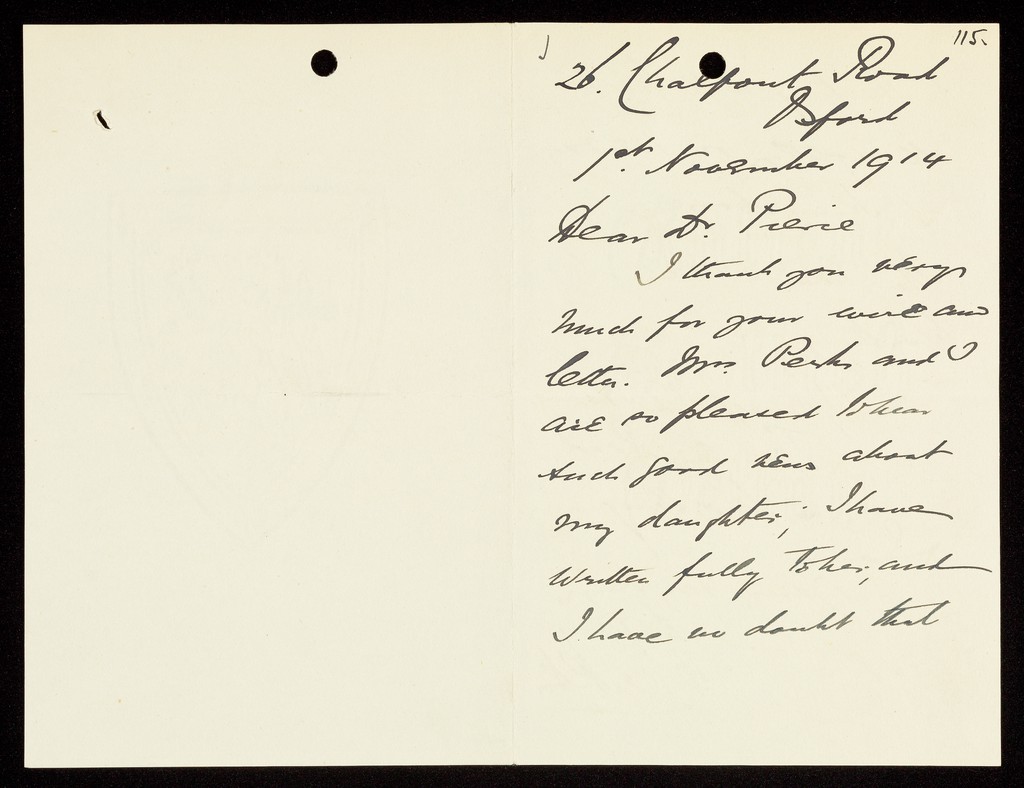 115.
26. Chalfont Road
Oxford
1st. November 1914
Dear Dr. Pierce
I thank you very
much for your wire and
letter. Mrs. Perks and I
are so pleased to hear
such good news about
my daughter; I have
written fully to her, and
I have no doubt that